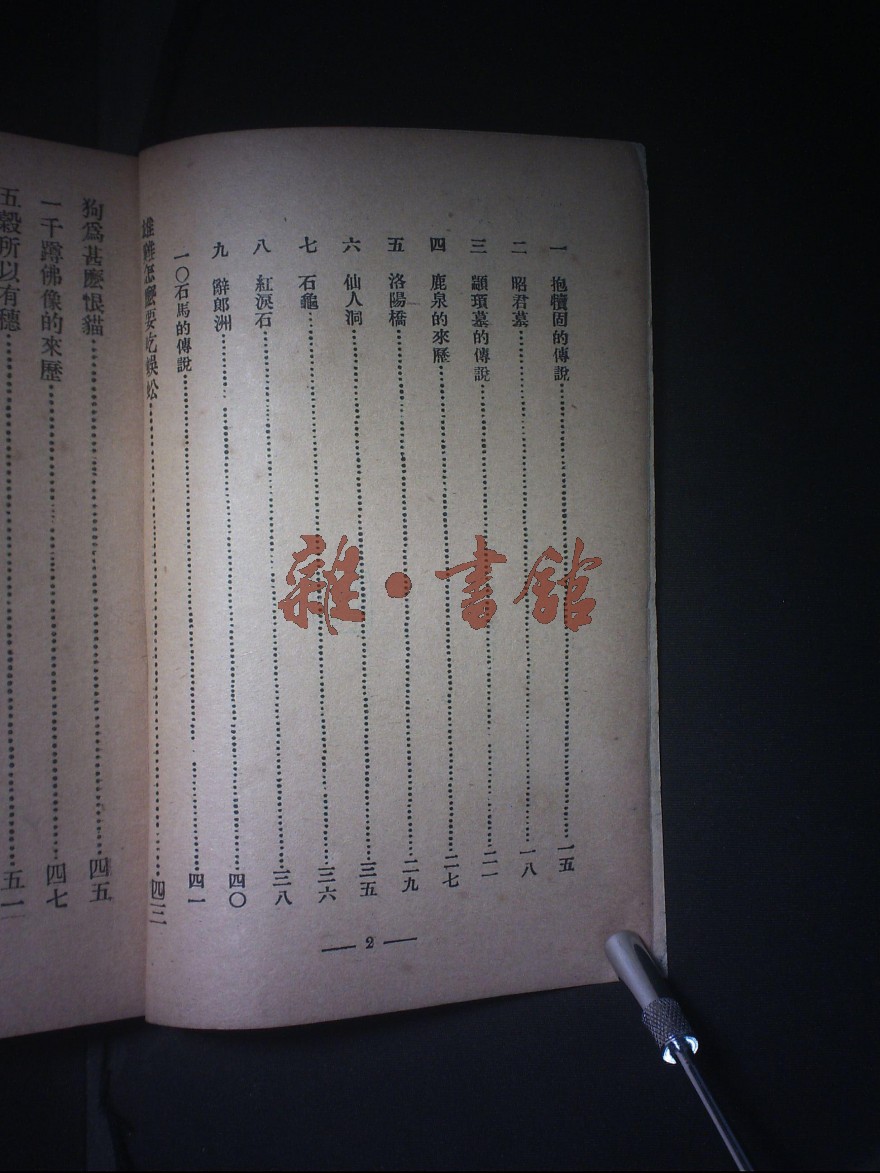 一 抱犢固的傳說……一五
二 昭君墓……一八
三 顓頊墓的傳說……二一
四 鹿泉的來歷……二七
五 洛陽橋……二九
六 仙人洞……三五
七 石龜……三六
八 紅淚石……三八
九 辭郎洲……四〇
一〇石馬的傳說……四一
雄雞怎麼要吃蜈蚣……四三
— 2 —
狗爲甚麼恨貓……四五
一千蹲佛像的來歷……四七
五穀所以有穗……五一
雜·書館